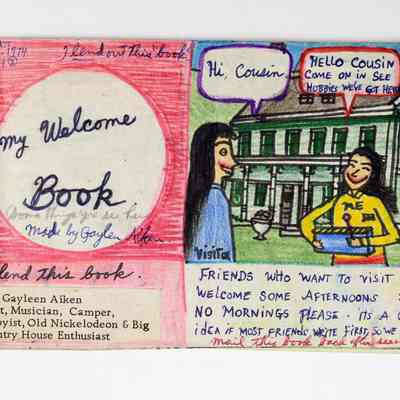 1974
I lend out this book
my Welcome
Book
Some things you'll see here
Made by Gaylen Aiken
lend this book.
Gayleen Aiken
t, Musician, Camper,
byist, Old Nickelodeon & Big
ntry House Enthusiast
Hi, Cousin.
HELLO COUSIN
COME ON IN SEE
HOBBIES WE'VE GOT HERE
ME
Visitor
FRIENDS WHO WANT TO VISIT
WELCOME SOME AFTERNOONS
NO MORNINGS PLEASE. ITS A G
IDEA IF MOST FRIENDS WRITE FIRST, SO WE
mail this book back after seei